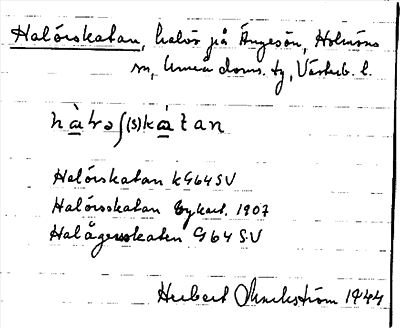 Halörskatan, halvö på Ängesön, Holmöns
sn, Umeå doms. tg, Västerb. l.
hàlrəʃ(s)kàtan
Halörskatan kG64SV
Halörsskatan Sykart. 1907
Halågersskaten G64SV
Herbert Omnkström 1944